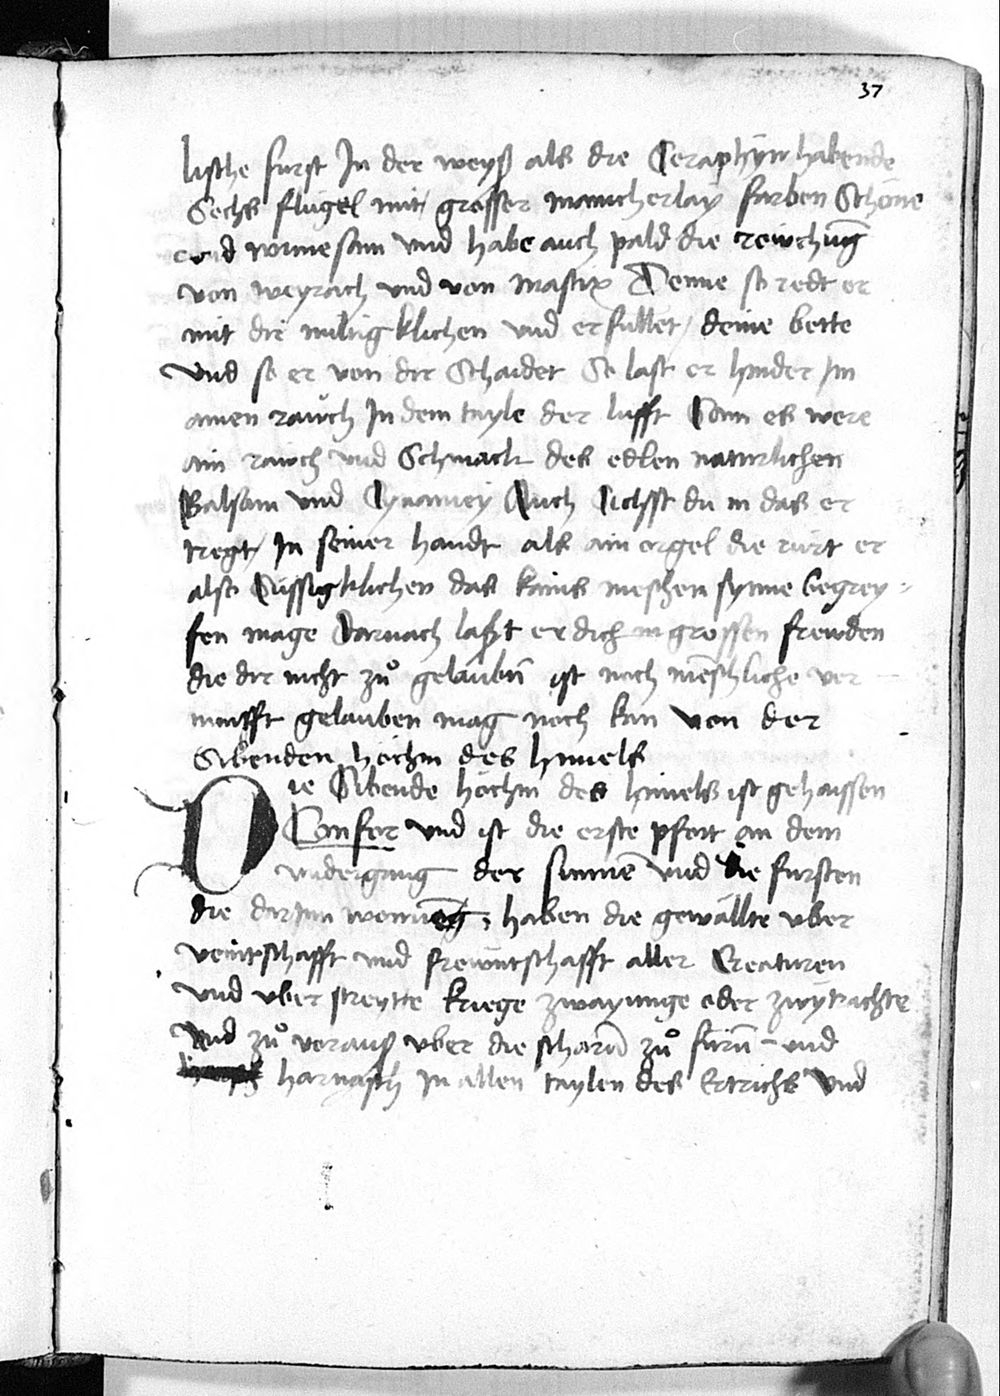 37
lische furst In der weyß als die Seraphyin habende
Sechs flügel mit grosser mancherlay farben Schöne
vnd wunesam vnd habe auch pald die rewchūg
von weyrach vnd von mastix Denne so redt er
mit dir miltigklichen vnd erfullet deine bette
vnd so er von dir Schaidet So last er hinder Im
ainen raůch In dem tayle der lufft Sam es were
ain rawch vnd Schmack des edlen naturlichen
Balsam vnd Cynamey Auch Sichsst du in das er
tregt In seiner handt als ain orgel die rürt er
also Süssigklichen das kains meschen synne begrey-
fen mage Darnach laßt er dich in grossen frewden
die dir nicht zů gelaubn̄ ist noch mēschliche ver
nunfft gelauben mag noch kan von der
Sibenden höchin des himels
Die Sibende höchin des himels ist gehaissen
Confor vnd ist die erste pfort an dem
vndergang der sunnē vnd die fursten
die dar Inn haben die gewällte vber
veintschafft vnd frewntschafft aller Creaturen
vnd vber streytte kriege zwayunge oder zwytrachte
vnd zů vorauß vber die scharn̄ zů furn̄ vnd
harnasch In allen taylen des Ertrichs vnd